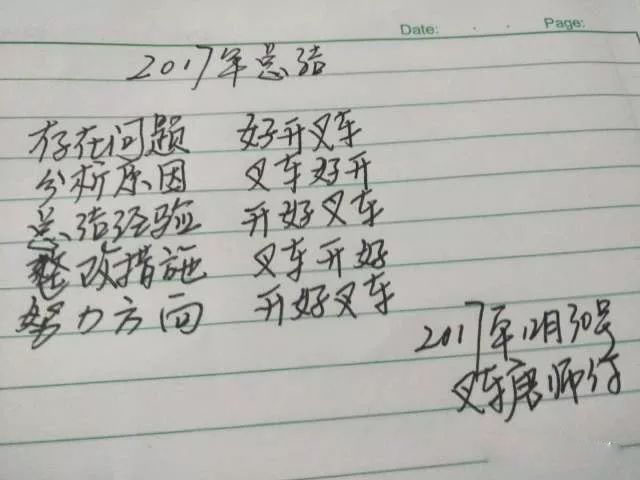 Date: . . Page:
2017年总结
存在问题 好开叉车
分析原因 叉车好开
总结经验 开好叉车
整改措施 叉车开好
努力方向 开好叉车
2017年12月30号
叉车唐师付